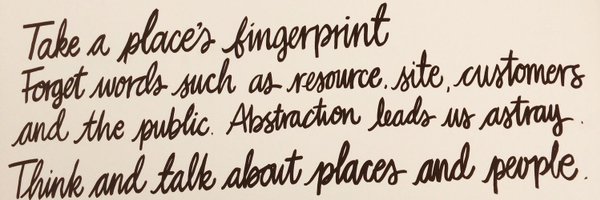 Take a place's fingerprint
Forget words such as resource, site, customers
and the public. Abstraction leads us astray.
Think and talk about places and people.